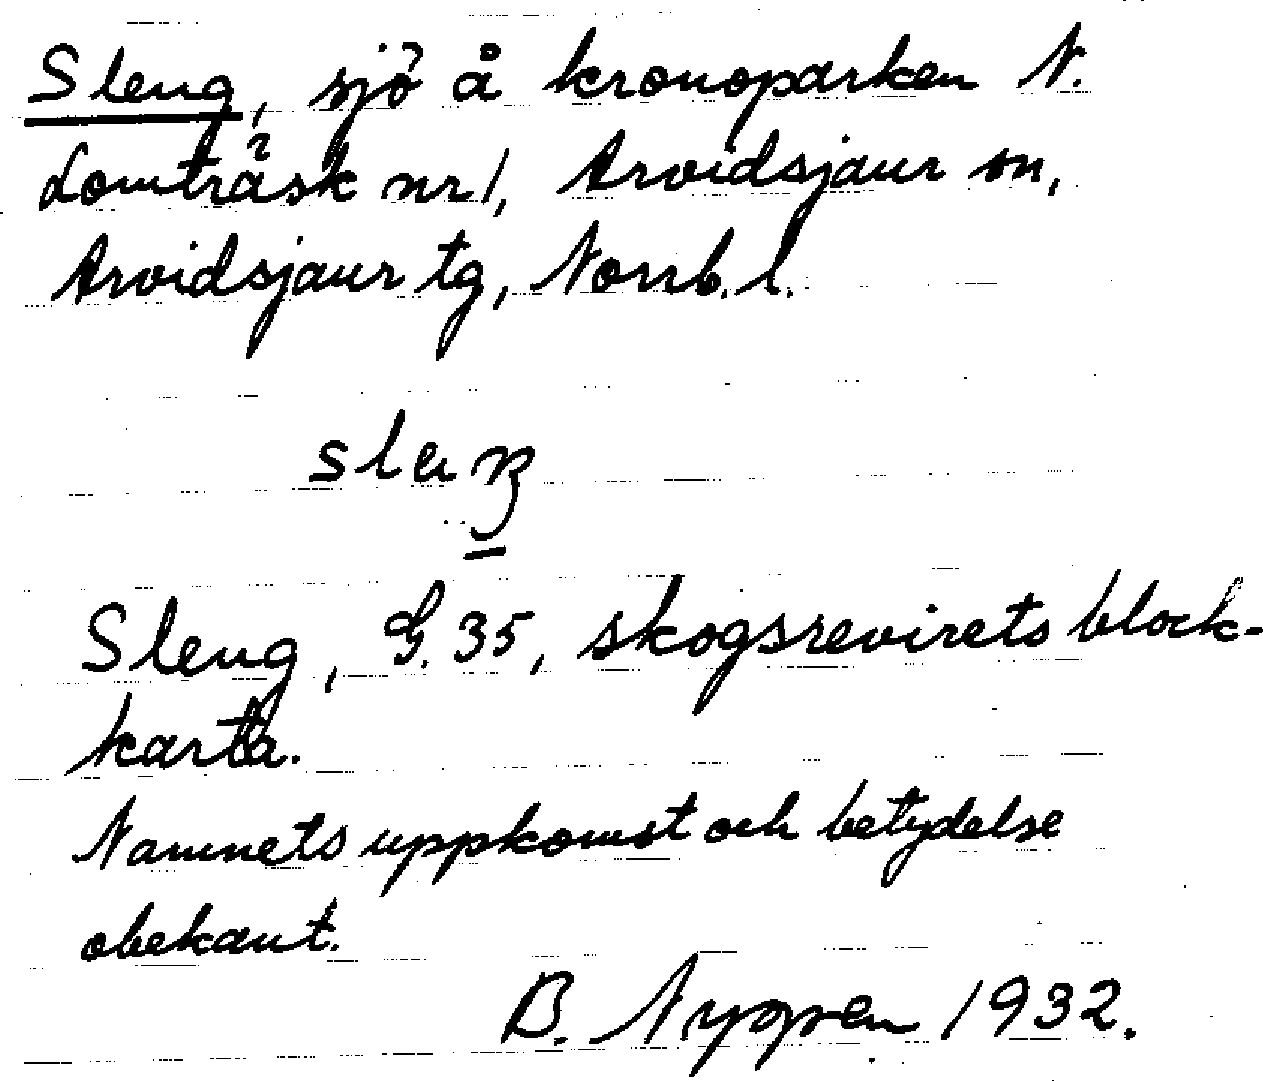 Sleng, sjö å kronoparken N.
Lomträsk nr 1, Arvidsjaur sn,
Arvidsjaur tg, Norrb. l.
Sleng, G. 35, skogsrevirets block-
karta.
Namnets uppkomst och betydelse
obekant.
B. Nygren 1932.